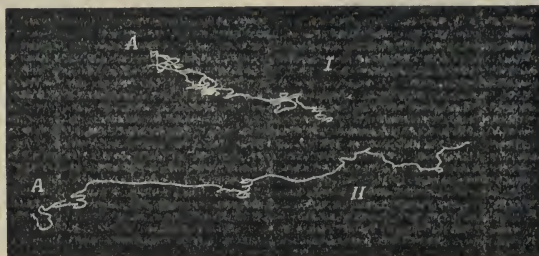 A I
A II